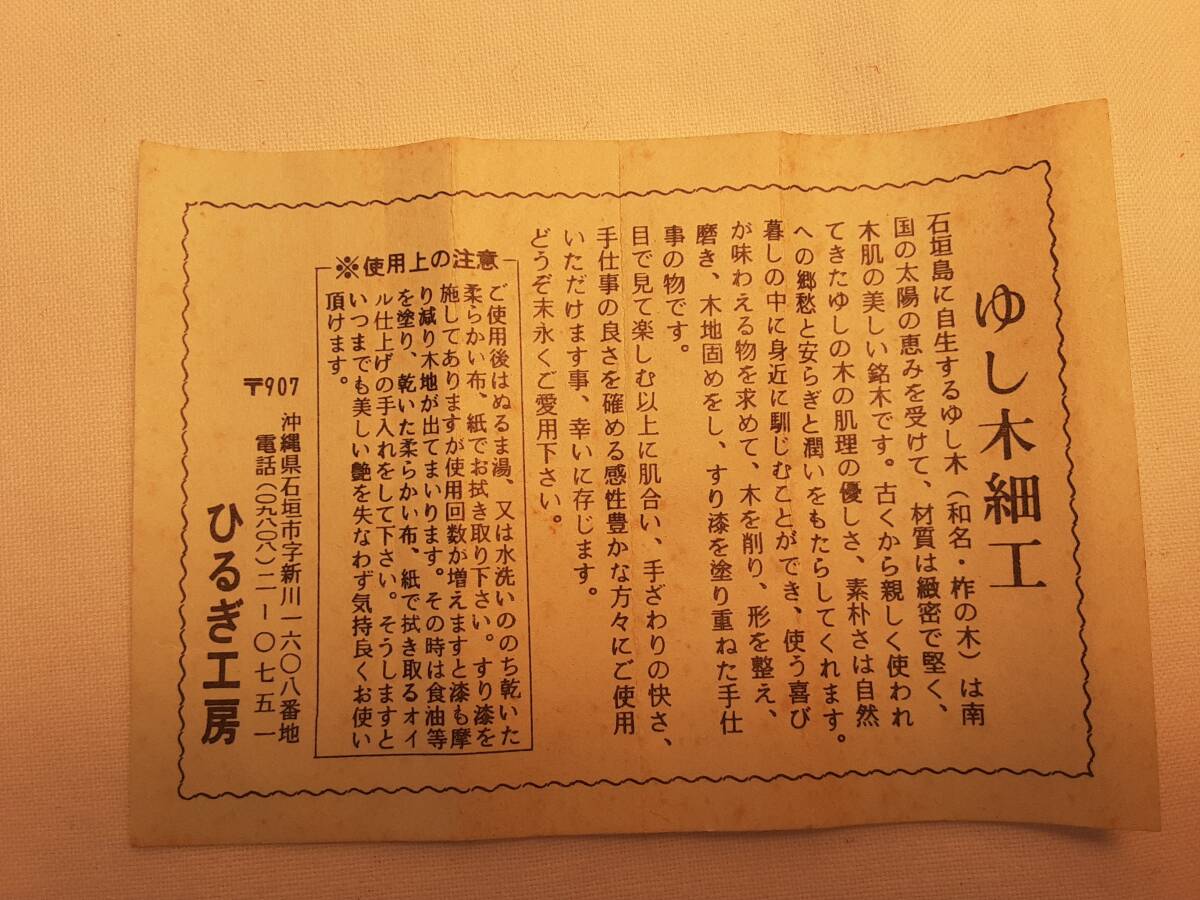 ゆし木細工
石垣島に自生するゆし木（和名・柞の木）は南
国の太陽の恵みを受けて、材質は緻密で堅く、
木肌の美しい銘木です。古くから親しく使われ
てきたゆしの木の肌理の優しさ、素朴さは自然
への郷愁と安らぎと潤いをもたらしてくれます。
暮しの中に身近に馴じむことができ、使う喜び
が味わえる物を求めて、木を削り、形を整え、
磨き、木地固めをし、すり漆を塗り重ねた手仕
事の物です。
目で見て楽しむ以上に肌合い、手ざわりの快さ、
手仕事の良さを確める感性豊かな方々にご使用
いただけます事、幸いに存じます。
どうぞ末永くご愛用下さい。
※使用上の注意
ご使用後はぬるま湯、又は水洗いののち乾いた
柔らかい布、紙でお拭き取り下さい。すり漆を
施してありますが使用回数が増えますと漆も摩
り減り木地が出てまいります。その時は食油等
を塗り、乾いた柔らかい布、紙で拭き取るオイ
ル仕上げの手入れをして下さい。そうしますと
いつまでも美しい艶を失なわず気持良くお使い
頂けます。
〒907 沖縄県石垣市字新川一六〇八番地
電話（〇九八〇八）二－〇七五一
ひるぎ工房